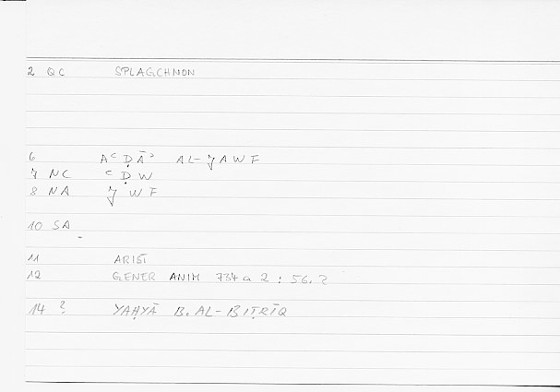 2 QC SPLAGCHNON
6 AʿḌĀʾ AL-ǦAWF
7 NC ʿḌW
8 NA ǦWF
10 SA
11 ARIST
12 GENER ANIM 734 a 2 : 56.2
14 ? YAḤYĀ B. AL-BIṬRĪQ